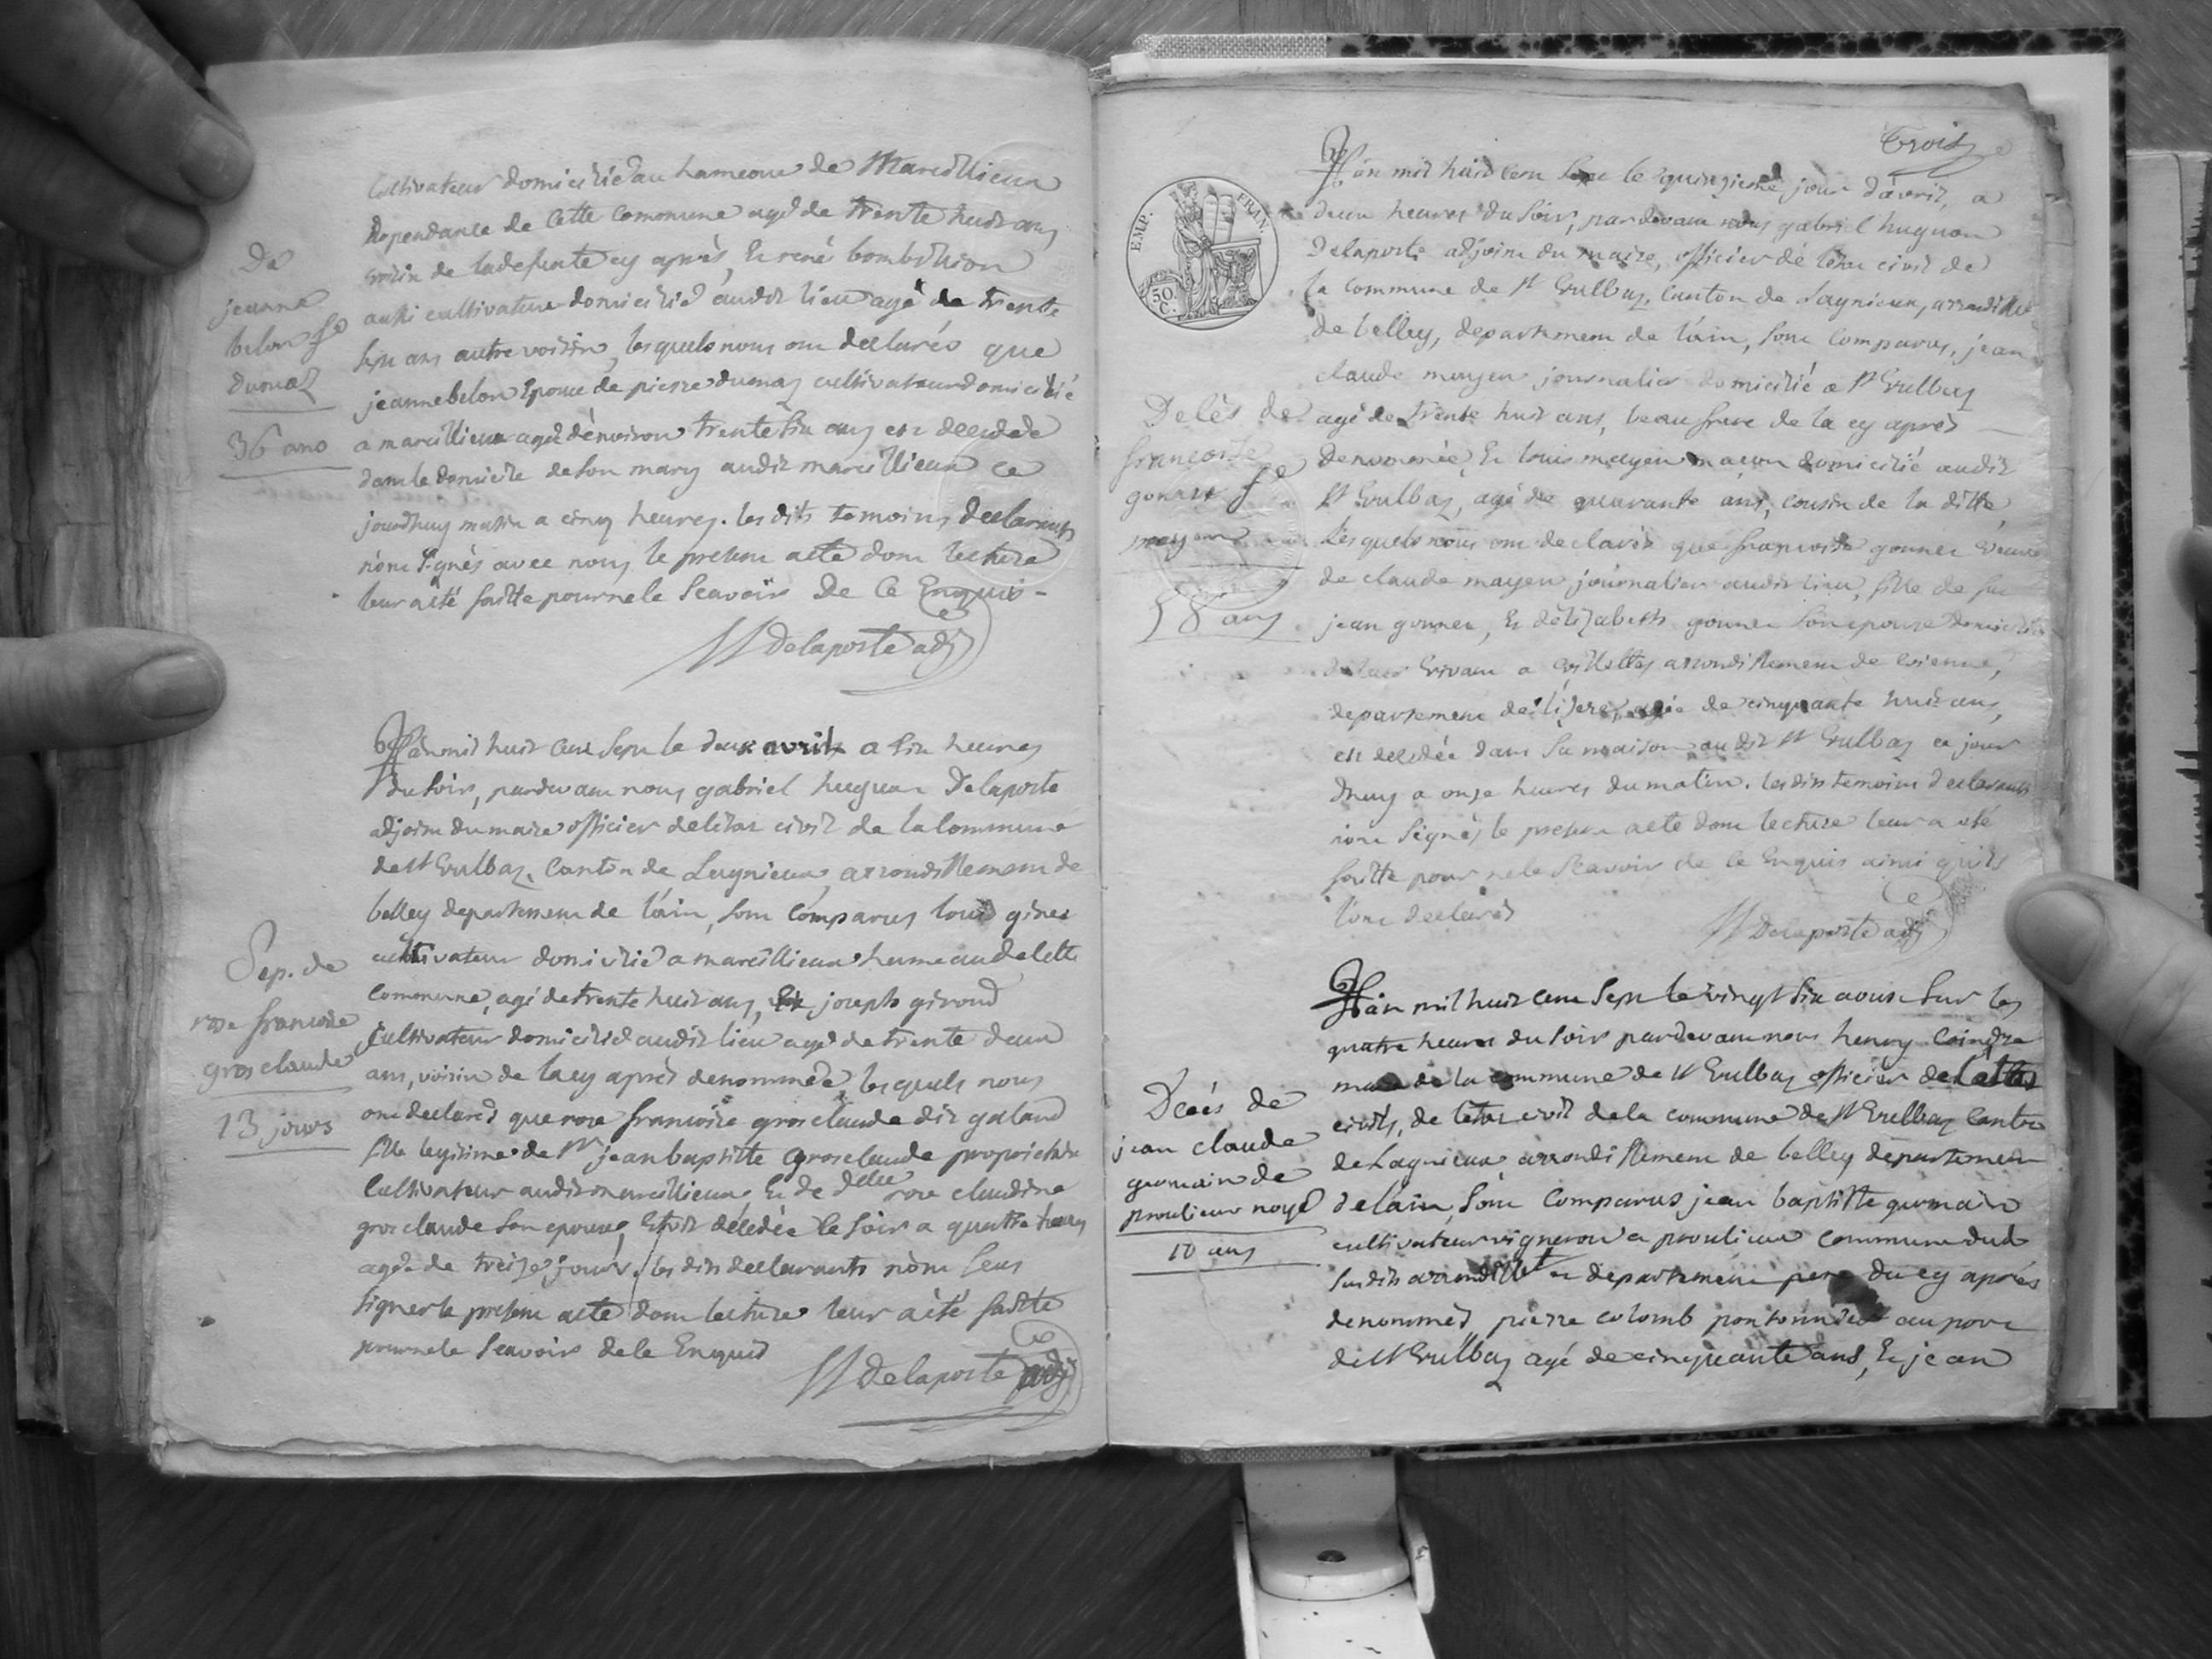 De
jeanne
belon fe
dumaz
36 ans
Cultivateur domicilié au hameau de Marcillieux
dependance de Cette Commune agé de trente huit ans
voisin de ladefunte cy après, Et rené bombillion
aussi cultivateur domicilié audit lieu agé de trente
sept ans autre voisin, lesquels nous ont declarés que
jeanne belon Epouse de pierre dumaz cultivateur domicilié
a marcillieux agée dénviron trente six ans est decedée
dans le domicile de son mary audit marcillieux ce
jourdhuy matin a cinq heures. les dits temoins declarants
nónt signés avec nous le present acte dont lecture
leur a été faitte pour ne le Scavoir De Ce Enquis -
H Delaporte adj
Sep. de
rose francoise
gros claude
13 jours
L'án mil huit cent sept le deux avril a six heures
du soir, pardevant nous gabriel huguon Delaporte
adjoint du maire officier de létat civil de la Commune
de St Vulbaz, Canton de Lagnieux, arrondissement de
belley departement de láin, sont comparus louis ginet
cultivateur domicilié a marcillieux hameau de cette
commune, agé de trente huit ans, Et joseph giroud
Cultivateur domicilié audit lieu agé de trente deux
ans, voisin de la cy après denommée, lesquels nous
ont declarés que rose francoise grosclaude dit galand
fille legitime de Sr jean baptiste grosclaude proprietaire
Cultivateur audit marcillieux, Et de delle rose claudine
gros claude son epouse, Etoit décédée le soir a quatre heures
agée de treize jours. les dits declarants nónt sceus
signer le present acte dont lecture leur a été faitte
pour ne le Scavoir de ce Enquis
H Delaporte adj
Troiz
EMP. FRAN.
50 C.
Délès de
francoise
gonnet fe
mayen
58 ans
L'án mil huit cent sept le quinzieme jour d'avril, a
deux heures du soir, pardevant nous gabriel huguon
Delaporte adjoint du maire, officier de létat civil de
la commune de St Vulbaz, Canton de Lagnieux, arrondisst
de belley, departement de láin, sont Comparus, jean
claude mayen journalier domicilié a St Vulbaz
agé de trente huit ans, beau frere de la cy après
denommée, Et louis mayen macon domicilié audit
St Vulbaz, agé de quarante ans, cousin de la ditte,
Lesquels nous ont declarés que francoise gonnet veuve
de claude mayen journalier audit lieu, fille de feu
jean gonnet, Et délizabeth gonnet son epouse
vivant a arrondissement de vienne,
departement de lisere, agée de cinquante huit ans,
est decedée dans sa maison audit St Vulbaz ce jour
dhuy a onze heures du matin. les dits temoins declarants
nont signés le present acte dont lecture leur a été
faitte pour ne le Scavoir de Ce Enquis ainsi quils
lónt declarés
H Delaporte adj
Décés de
jean claude
germain de
proulieux noyé
10 ans
L'án mil huit cent sept le vingt six aoust sur les
quatre heures du soir pardevant nous henry Coindre
maire de la commune de St Vulbaz officier de
civils, de létat civil de la commune de St Vulbaz Canton
de Lagnieux, arrondissement de belley departement
de lain, sont Comparus jean baptiste germain
cultivateur vigneron a proulieux commune dud
susdits arrondisst et departement pere du cy après
denommés, pierre colomb pontonnier au port
de St Vulbaz agé de cinquante ans, Et jean